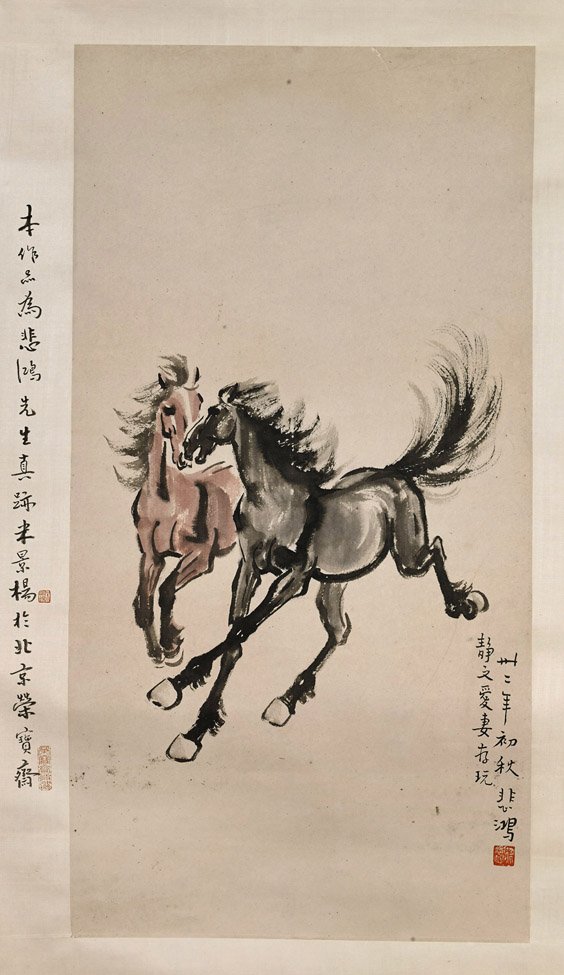 卅二年初秋悲鴻
靜文愛妻存玩
本作品為悲鴻先生真跡米景楊於北京榮寶齋